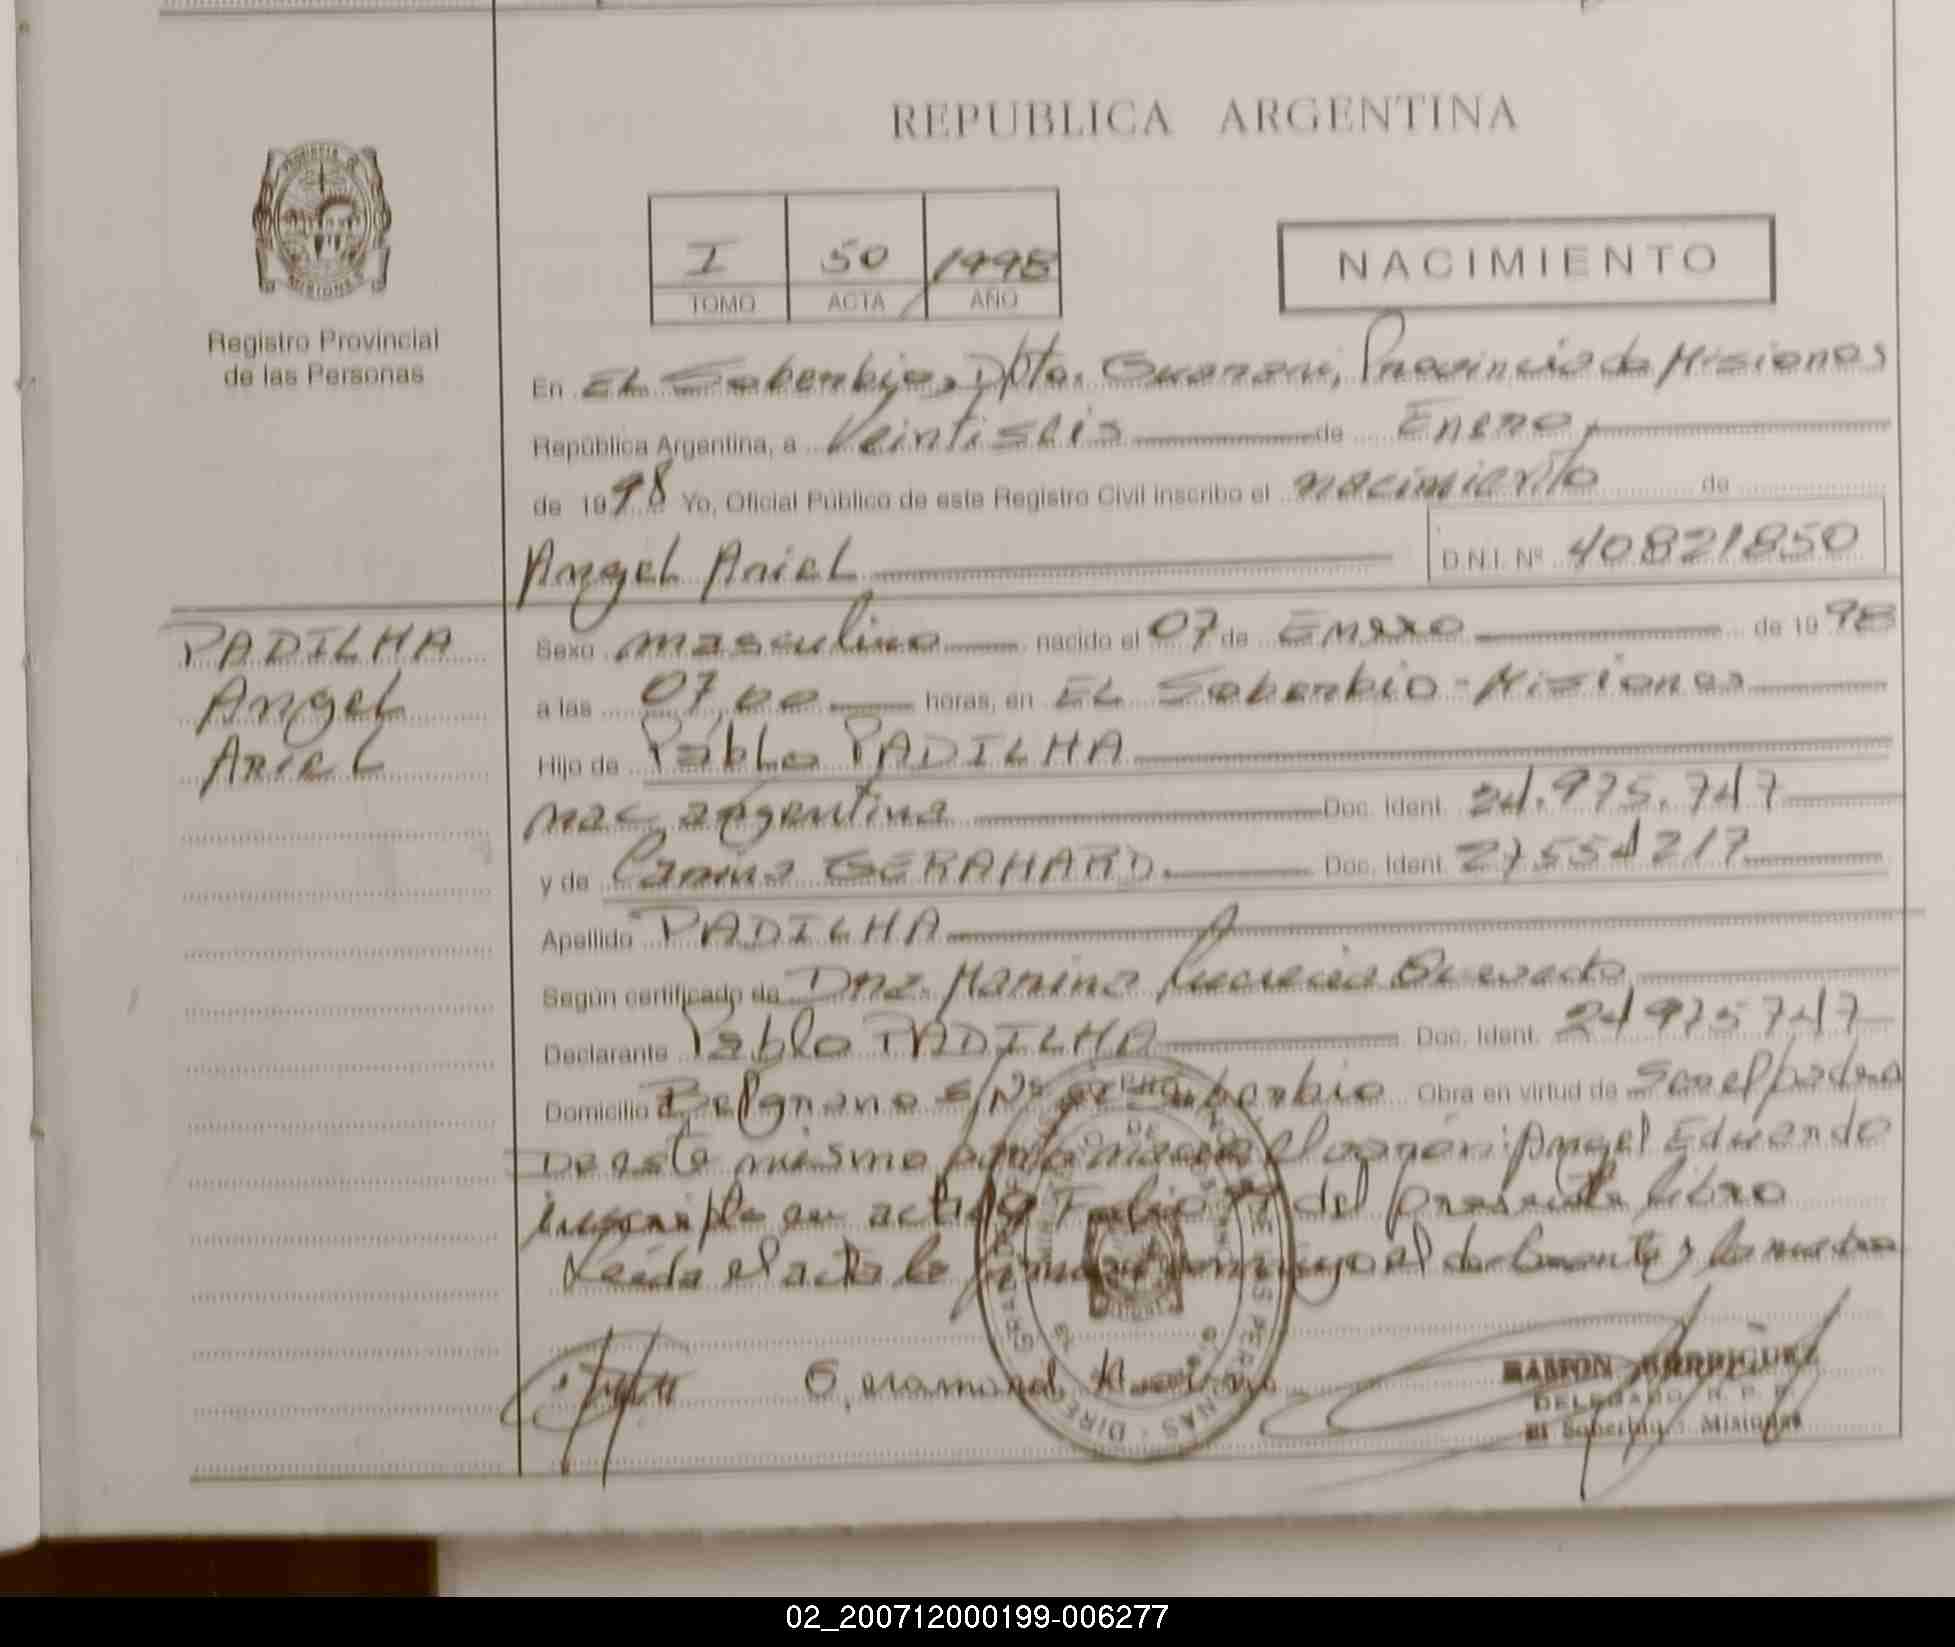 REPUBLICA ARGENTINA
PROVINCIA DE
MISIONES
Registro Provincial
de las Personas
I 50 1998
TOMO ACTA AÑO
NACIMIENTO
En EL Soberbio, Dpto. Guarani, Provincia de Misiones
República Argentina, a Veintiseis de Enero,
de 1998 Yo, Oficial Público de este Registro Civil inscribo el nacimiento de
Angel Ariel D.N.I. Nº 40821850
PADILHA
Angel
Ariel
Sexo masculino nacido el 07 de Enero de 1998
a las 07,00 horas, en EL Soberbio - Misiones
Hijo de Pablo PADILHA
nac argentina Doc. Ident. 24.975.747
y de Carina GERAHARD Doc. Ident. 27554217
Apellido PADILHA
Según certificado de Dra. Marina Lucrecia
Declarante Pablo PADILHA Doc. Ident. 24975747
Domicilio Belgrano S/Nº Soberbio Obra en virtud de Ser el padre
De este mismo parto el varón: Angel Eduardo
en acta Folio del presente libro
Leida el acta la firman conmigo el declarante y la madre
RAMON RODRIGUEZ
DELEGADO R. P. P.
El Soberbio - Misiones
02_200712000199-006277